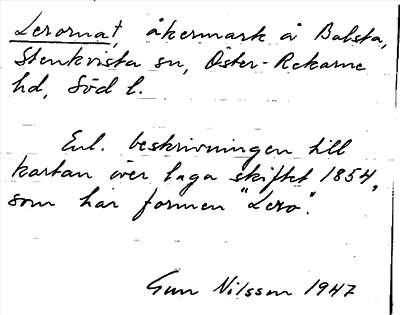 Lerorna, åkermark å Balsta,
Stenkvista sn, Öster-Rekarne
hd, Söd l.
Enl. beskrivningen till
kartan över laga skiftet 1854,
som har formen "Lero".
Gun Nilsson 1947